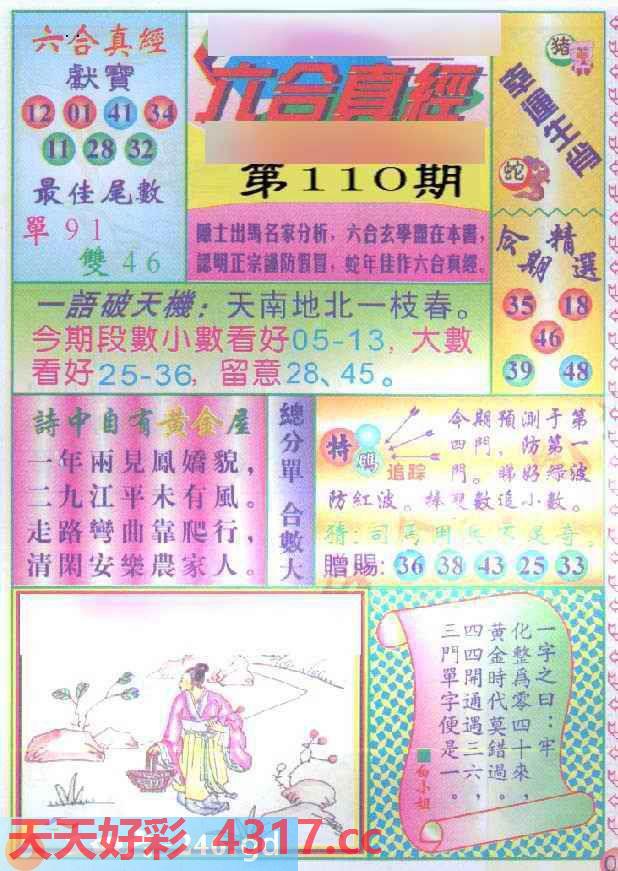 六合真經
獻寶
12 01 41 34
11 28 32
最佳尾數
單91
雙46
六合真經
第110期
隱士出馬名家分析，六合玄學盡在本書，
認明正宗謹防假冒，蛇年佳作六合真經。
豬
蛇
今期精選
35 18
46
39 48
一語破天機：天南地北一枝春。
今期段數小數看好05-13，大數
看好25-36，留意28、45。
詩中自有黃金屋
一年兩見鳳嬌貌，
二九江平未有風。
走路彎曲靠爬行，
清閑安樂農家人。
總分單 合數大
特碼
追踪
今期預測于第
四門，防第一
門。睇好綠波
防紅波。棒視數追小數。
猜：司馬用兵不足奇。
贈賜：36 38 43 25 33
一字之曰：牢
化整爲零四十來，
黃金時代莫錯過。
四四開通遇三六，
三門單字便是一。
白小姐
天天好彩 4317.cc
246.gd